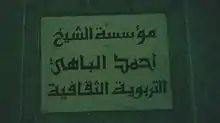 مؤسسة الشيخ
أحمد الباهي
التربوية الثقافية